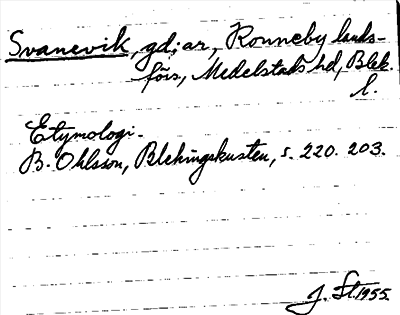 Svanevik, gd; ar, Ronneby lands-
förs, Medelstads hd, Blek.
l.
Etymologi.
B. Ohlsson, Blekingskusten, s. 220. 203.
J. St. 1955.